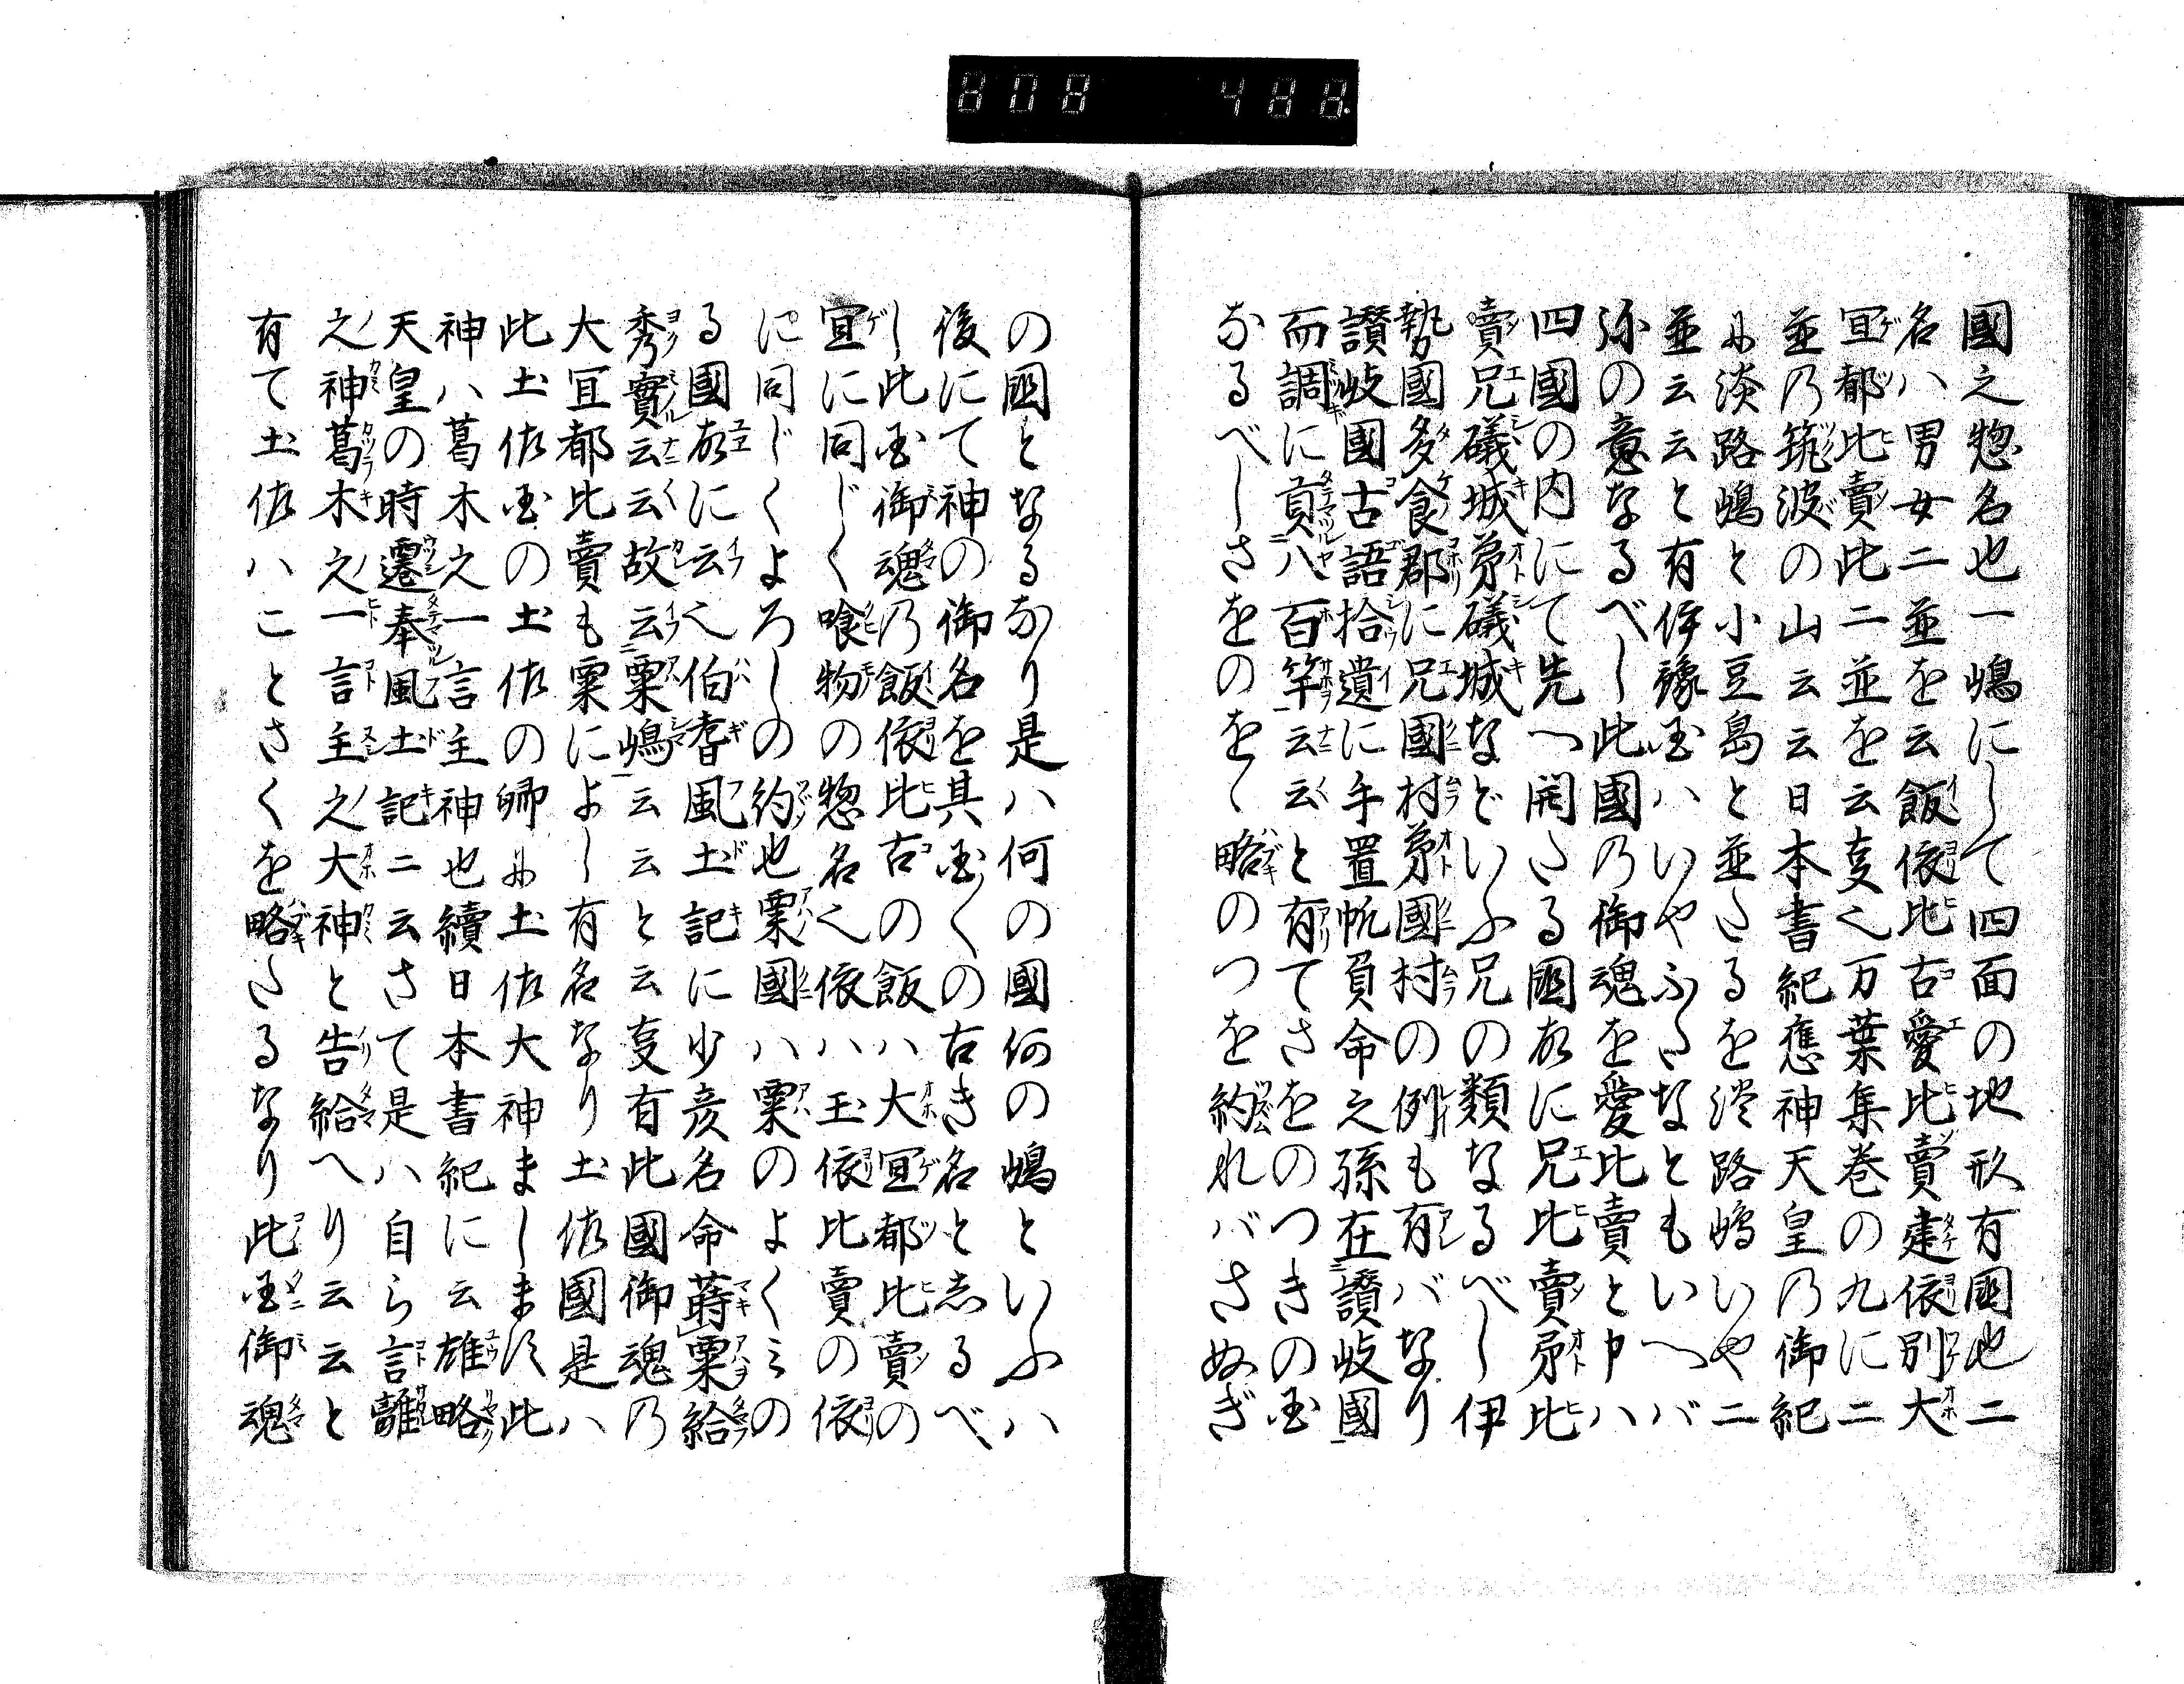 808 488
國之惣名也一嶋にして四面の地形有國也二
名ハ男女二並を云飯依比古愛比賣建依別大
冝都比賣此二並を云㕝也万葉集巻の九に二
並乃筑波の山云云日本書紀應神天皇乃御紀
に淡路嶋と小豆島と並たるを淡路嶋いや二
並云云と有伊豫国ハいやふたなともいへバ
弥の意なるべし此國乃御魂を愛比賣と申ハ
四國の内にて先つ開たる國故に兄比賣弟比
賣兄礒城弟礒城などいふ兄の類なるべし伊
勢國多食郡に兄國村弟國村の例も有バなり
讃岐國古語拾遺に手置帆負命之孫在讃岐國
而調に貢八百竿云云と有てさをのつきの国
なるべしさをのを略のつを約れバさぬぎ
の國となるなり是ハ何の國何の嶋といふハ
後にて神の御名を其国〱の古き名と志るべ
し此国御魂乃飯依比古の飯ハ大冝都比賣の
冝に同じく喰物の惣名也依ハ玉依比賣の依
に同じくよろしの約也粟國ハ粟のよくミの
る國故に云也伯耆風土記に少彦名命蒔粟給
秀實云云故云粟嶋云云と云㕝有此國御魂乃
大冝都比賣も粟によし有名なり土佐國是ハ
此土佐国の土佐の郷に土佐大神まします此
神ハ葛木之一言主神也續日本書紀に云雄略
天皇の時遷奉風土記ニ云さて是ハ自ら言離
之神葛木之一言主之大神と告給へり云云と
有て土佐ハことさくを略たるなり此国御魂